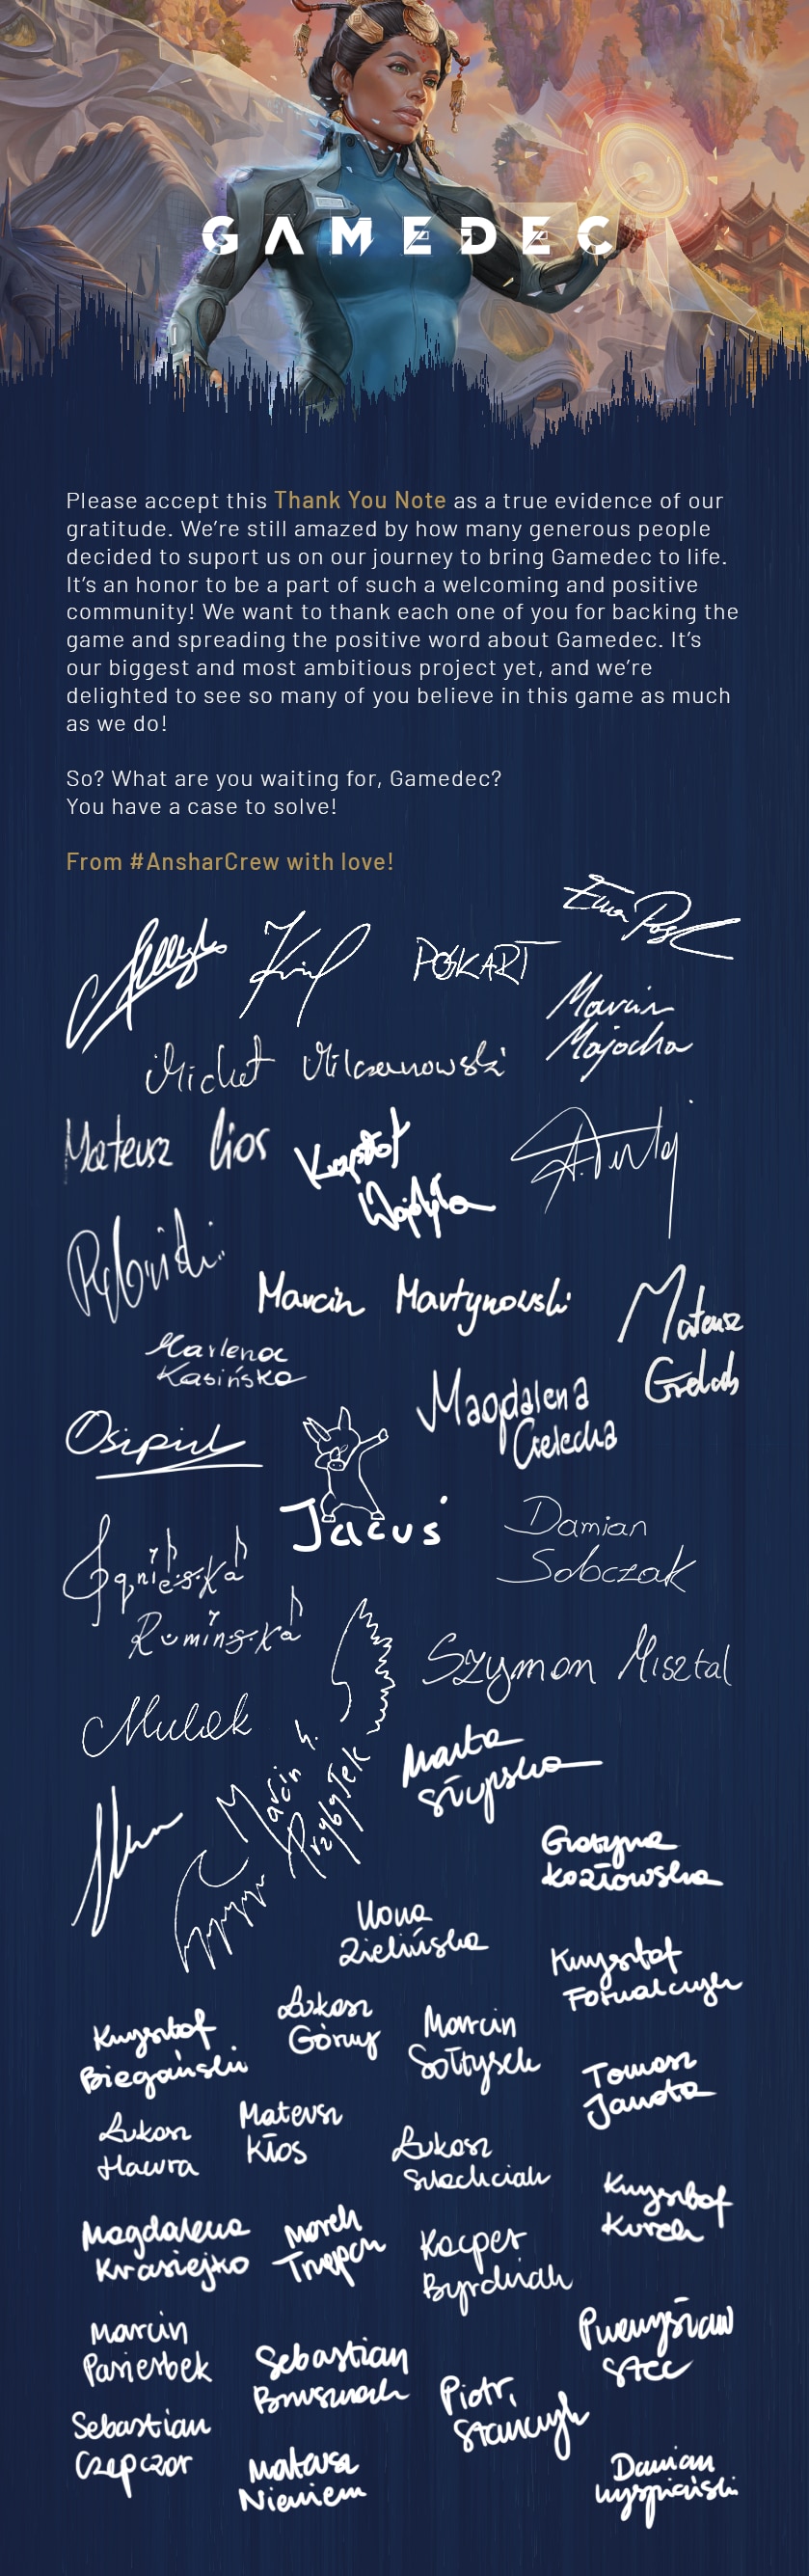 GAMEDEC
Please accept this Thank You Note as a true evidence of our
gratitude. We're still amazed by how many generous people
decided to suport us on our journey to bring Gamedec to life.
It's an honor to be a part of such a welcoming and positive
community! We want to thank each one of you for backing the
game and spreading the positive word about Gamedec. It's
our biggest and most ambitious project yet, and we're
delighted to see so many of you believe in this game as much
as we do!
So? What are you waiting for, Gamedec?
You have a case to solve!
From #AnsharCrew with love!
POSKART
Marcin
Majocha
Michał
Mateusz
Krzysztof
Marcin Martynowski
Mateusz
Marlena
Kasińska
Magdalena
Cielecka
Jacuś
Damian
Sobczak
Agnieszka
Rumińska
Szymon Misztal
Mulak
Marcin S.
Przybyłek
Marta
Słupska
Grażyna
Kozłowska
Ilona
Zielińska
Krzysztof
Fornalczyk
Łukasz
Górny
Krzysztof
Biegański
Marcin
Sołtysek
Tomasz
Janota
Mateusz
Kłos
Łukasz
Hawra
Łukasz
Krzysztof
Magdalena
Krasiejko
Marek
Kacper
Marcin
Pasierbek
Przemysław
Stec
Sebastian
Piotr
Stańczyk
Sebastian
Czepczor
Mateusz
Niemiem
Damian
Wyspiański